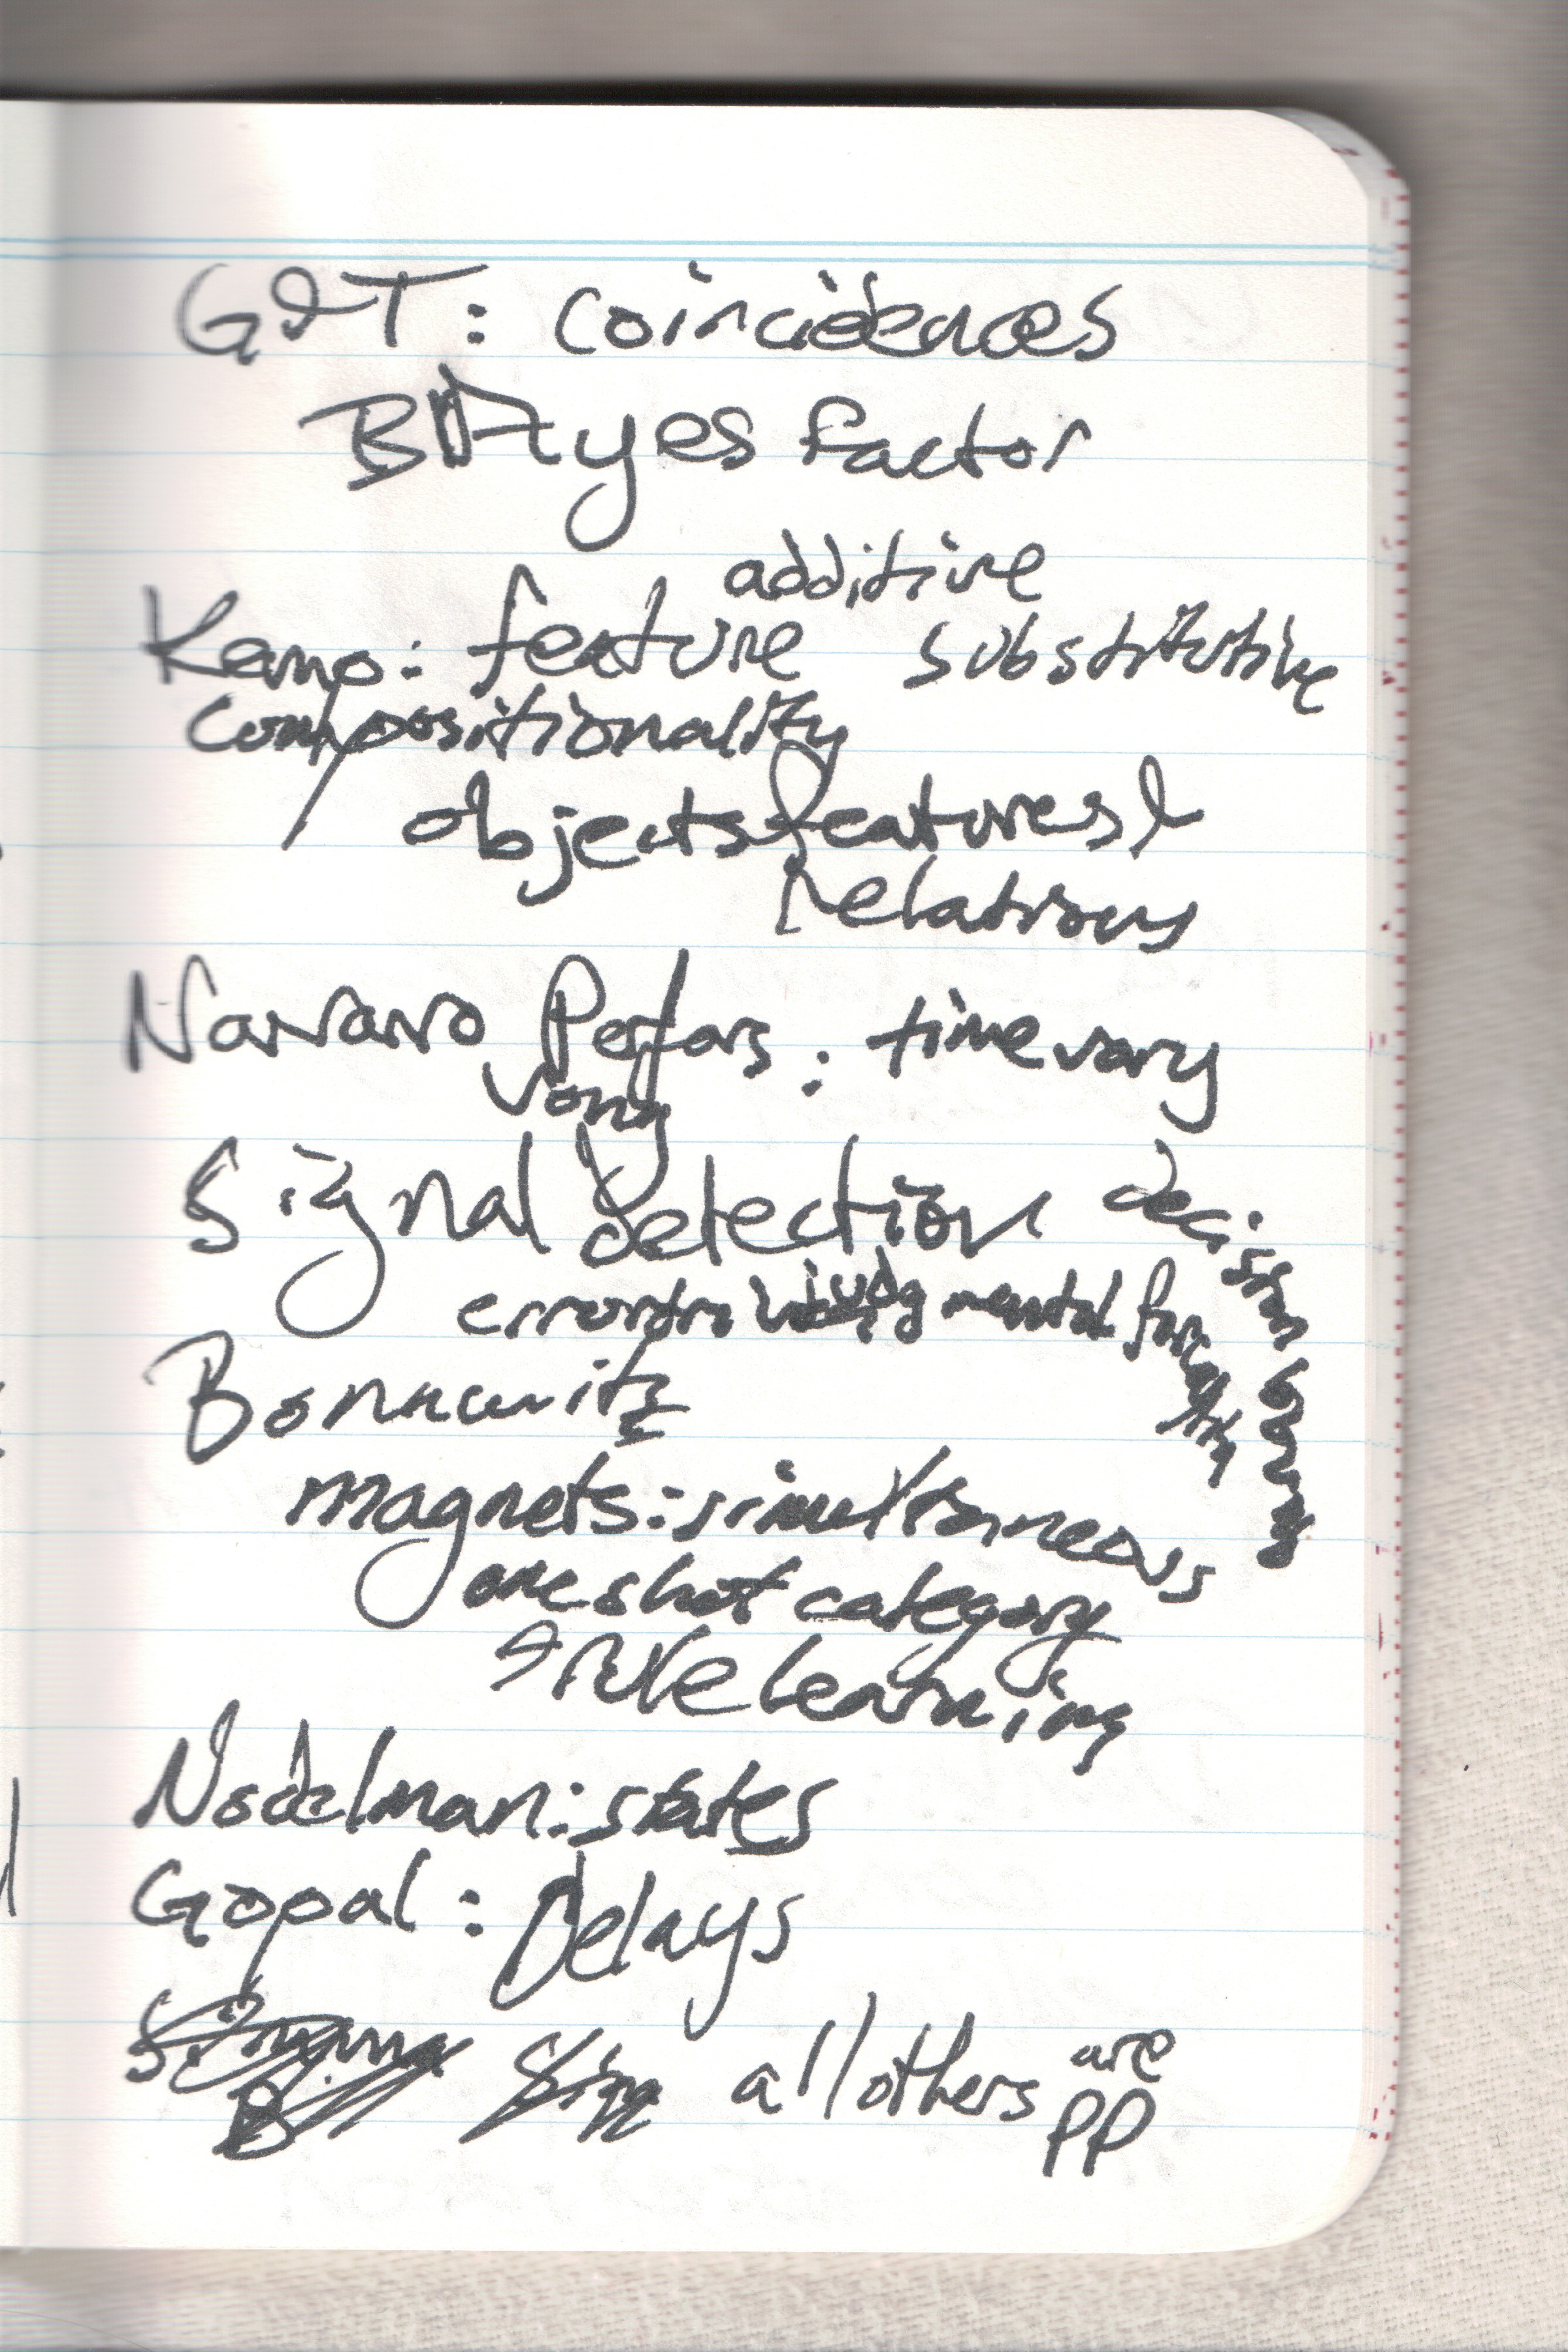 G&T: coincidences
BAyes factor
additive
Kemp: feature substitutive
compositionality
objects features &
relations
Navarro Perfors: time vary
Vong
Signal Detection decision
error in judgmental
Bonawitz
magnets: simultaneous
one shot category
+ rule learning
Nodelman: states
Gopal: Delays
all others are
PP